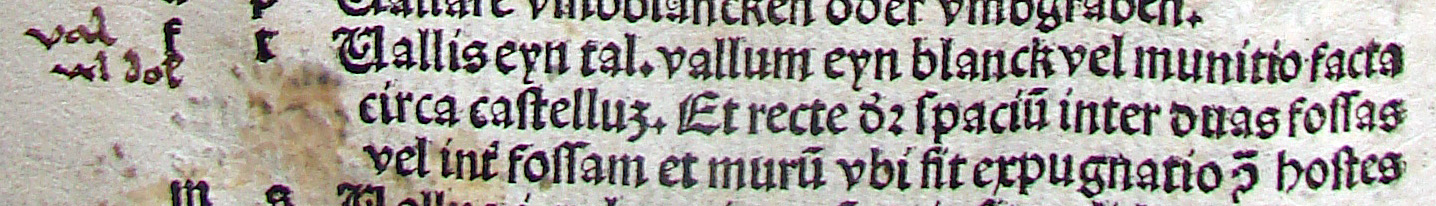 Uallare vmbblancken oder vmbgraben.
val f r Uallis eyn tal. vallum eyn blanck vel munitio facta
circa castelluʒ. Et recte dꝛ spaciū inter duas fossas
vel int̄ fossam et murū vbi fit expugnatio ꝯ̄ hostes
m s